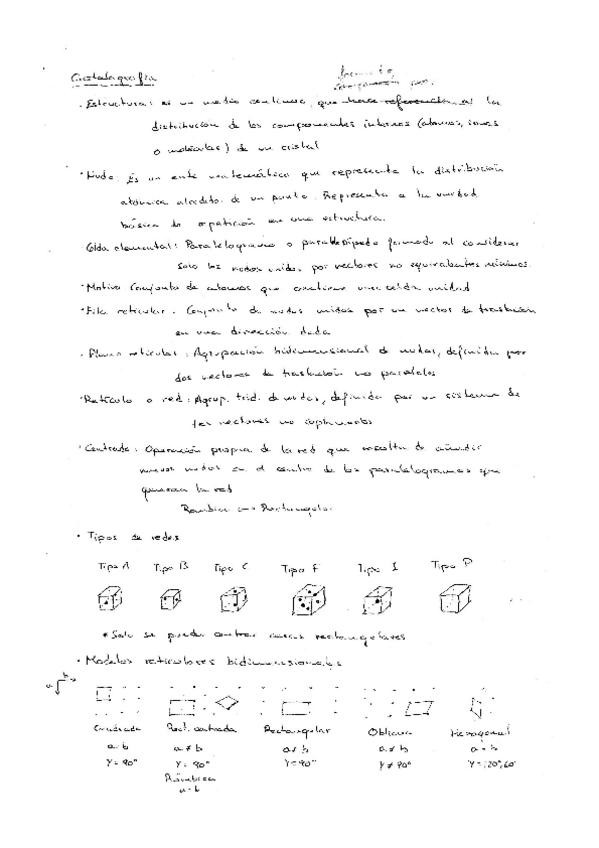 Cristalografía
· Estructura: es un medio continuo, que hace referencia a la
distribución de los componentes internos (átomos, iones
o moléculas) de un cristal
· Nudo: Es un ente matemático que representa la distribución
atómica alrededor de un punto. Representa a la unidad
básica de repetición en una estructura.
Celda elemental: Paralelogramo o paralelepípedo formado al considerar
solo los nodos unidos por vectores no equivalentes mínimos.
· Motivo Conjunto de átomos que contiene una celda unidad
· Fila reticular. Conjunto de nudos unidos por un vector de traslación
en una dirección dada
· Plano reticular: Agrupación bidimensional de nudos, definida por
dos vectores de traslación no paralelos
· Retículo o red: Agrup. trid. de nudos, definida por un sistema de
tres vectores no coplanarios
· Centrado: Operación propia de la red que resulta de añadir
nuevos nudos en el centro de los paralelogramos que
generan la red
Rectangular
· Tipos de redes
Tipo A Tipo B Tipo C Tipo F Tipo I Tipo P
* Solo se pueden centrar caras rectangulares
· Modelos reticulares bidimensionales
a b
Cuadrada Rect. centrada Rectangular Oblicua Hexagonal
a=b a≠b a≠b a≠b a=b
γ=90° γ=90° γ=90° γ≠90° γ=120°,60°
Rómbica
a=b